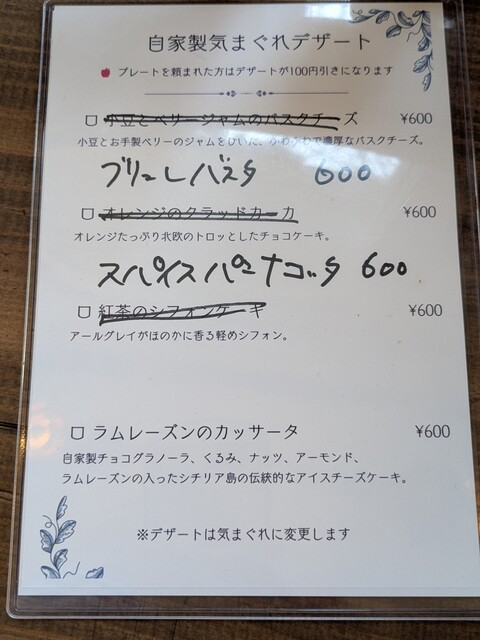 自家製気まぐれデザート
プレートを頼まれた方はデザートが100円引きになります
小豆とベリージャムのバスクチーズ ¥600
小豆とお手製ベリーのジャムをひいた、ふわふわで濃厚なバスクチーズ。
ブリュレバスク 600
オレンジのクラッドカーカ ¥600
オレンジたっぷり北欧のトロッとしたチョコケーキ。
スパイスパンナコッタ 600
紅茶のシフォンケーキ ¥600
アールグレイがほのかに香る軽めシフォン。
ラムレーズンのカッサータ ¥600
自家製チョコグラノーラ、くるみ、ナッツ、アーモンド、
ラムレーズンの入ったシチリア島の伝統的なアイスチーズケーキ。
※デザートは気まぐれに変更します